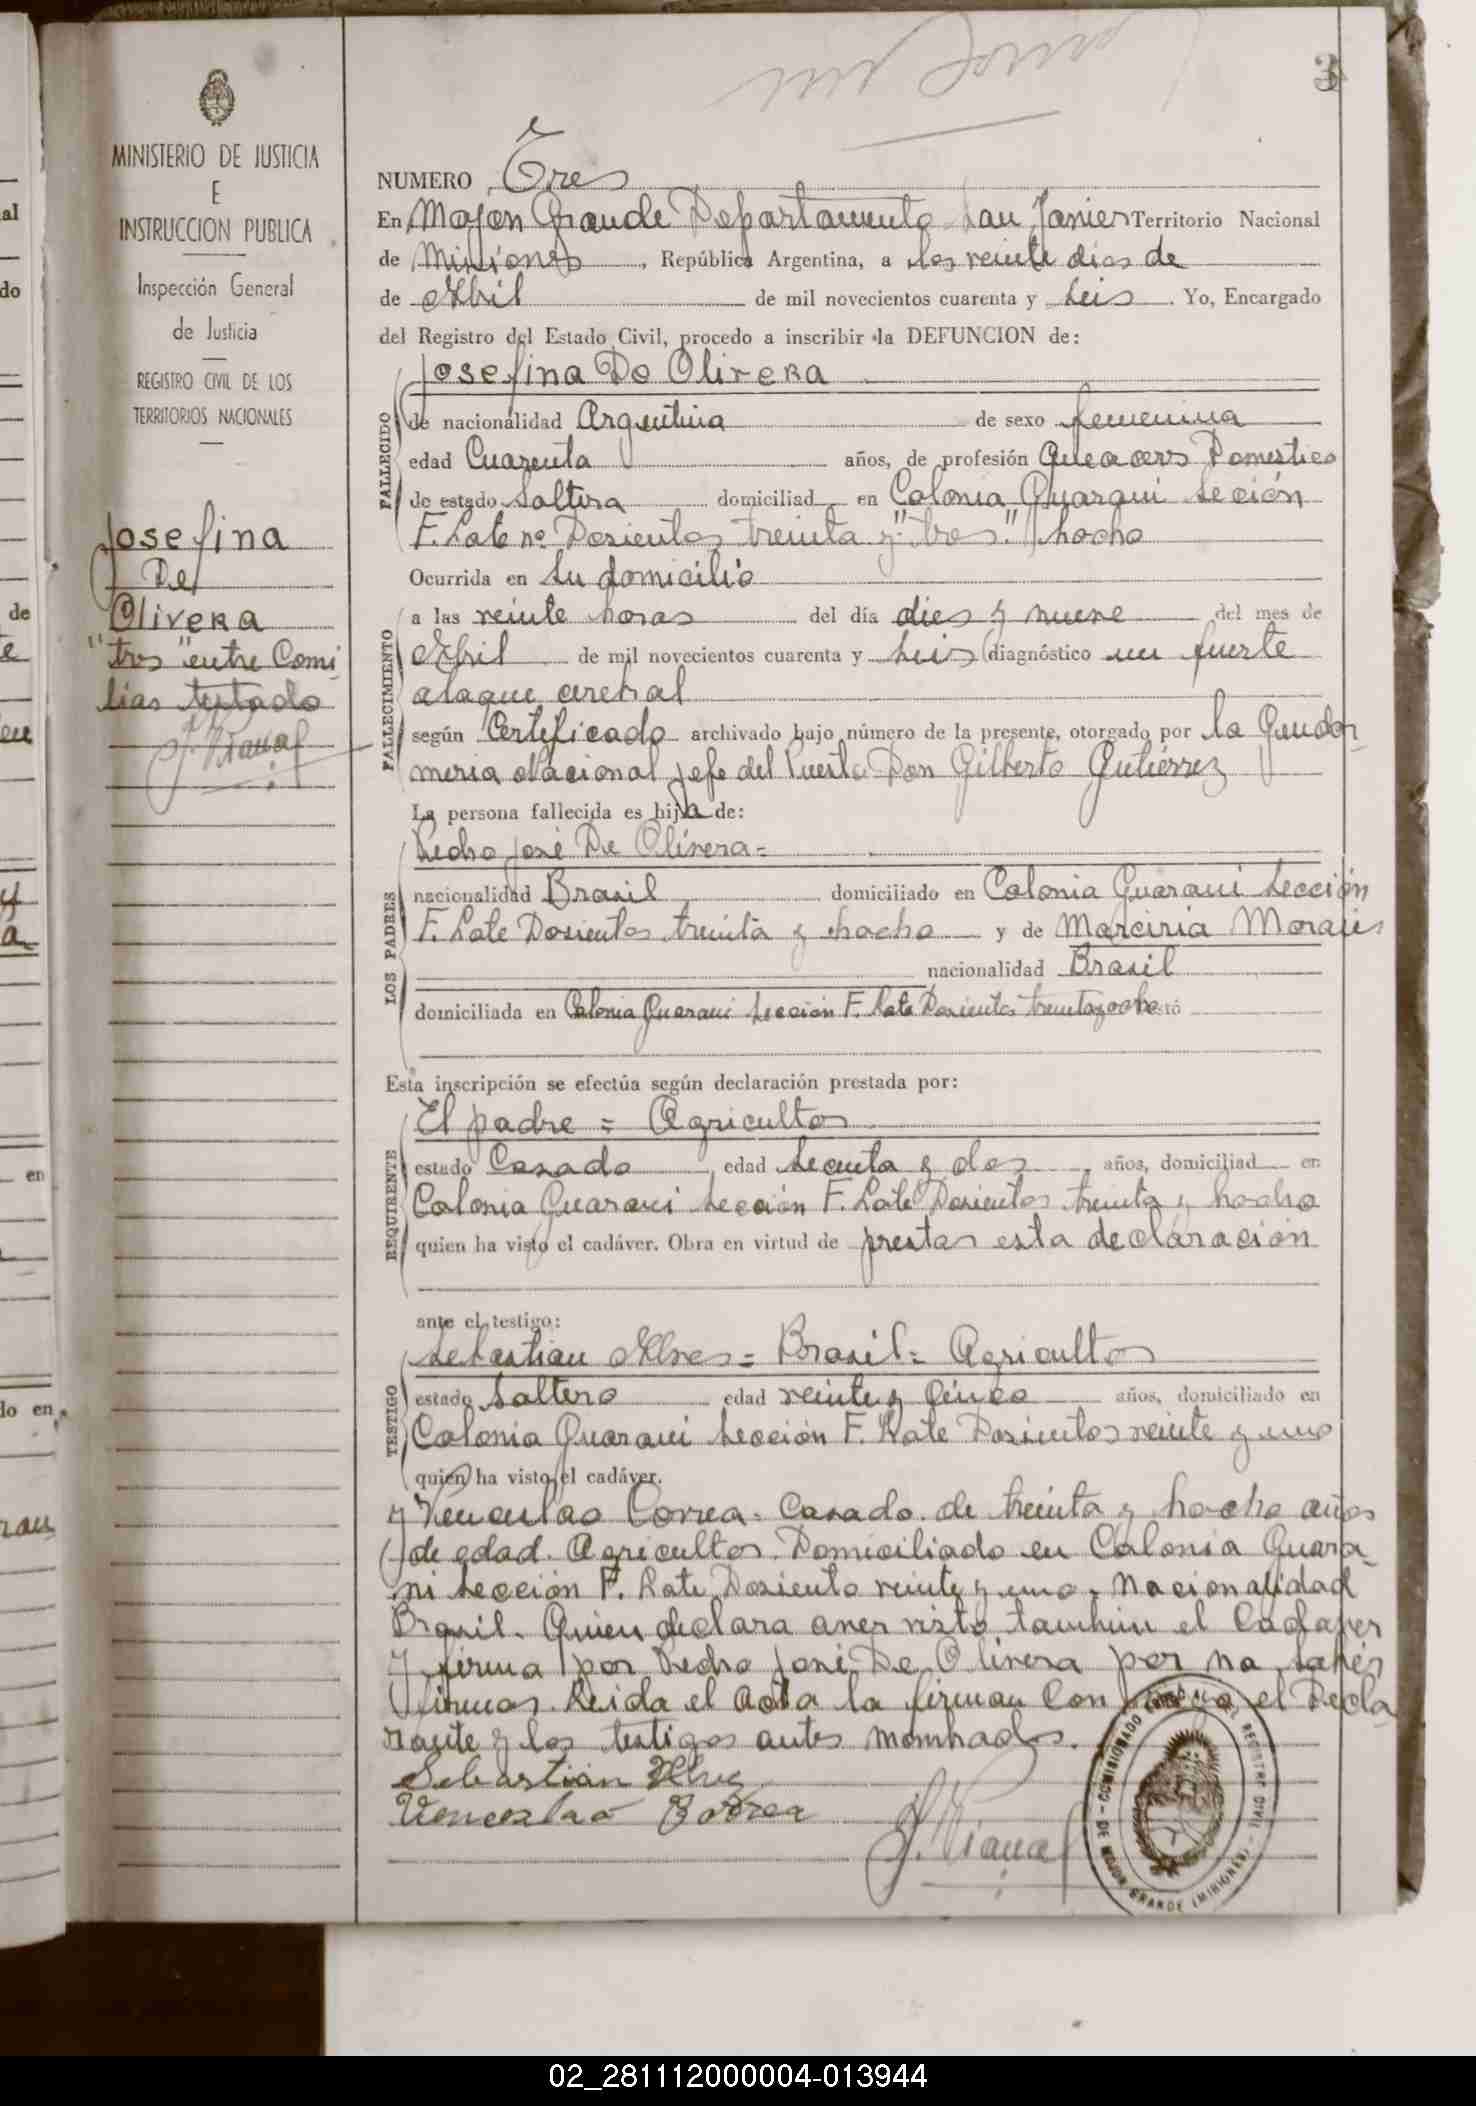 3
MINISTERIO DE JUSTICIA
E
INSTRUCCION PUBLICA
Inspección General
de Justicia
REGISTRO CIVIL DE LOS
TERRITORIOS NACIONALES
Josefina
De
Olivera
"tres" entre Comi
lias testado
NUMERO Tres
En Mojon Grande Departamento San Javier Territorio Nacional
de Misiones, República Argentina, a los veinte dias de
de Abril de mil novecientos cuarenta y seis. Yo, Encargado
del Registro del Estado Civil, procedo a inscribir la DEFUNCION de:
FALLECIDO
Josefina De Olivera
de nacionalidad Argentina de sexo femenina
edad Cuarenta años, de profesión Queaceres Domestico
de estado Soltera domiciliad en Colonia Guarani Sección
F. Lote nº Dosientos treinta y "tres." hocho
Ocurrida en su domicilio
FALLECIMIENTO
a las veinte horas del día dies y nueve del mes de
Abril de mil novecientos cuarenta y seis diagnóstico un fuerte
ataque cerebral
según Certificado archivado bajo número de la presente, otorgado por la Gendar
meria Nacional jefe del Puesto Don Gilberto Gutiérrez
La persona fallecida es hija de:
LOS PADRES
Pedro José De Olivera=
nacionalidad Brasil domiciliado en Colonia Guarani Sección
F. Lote Dosientos treinta y hocho y de Marciria Morais
nacionalidad Brasil
domiciliada en Colonia Guarani Sección F. Lote Dosientos treinta y ocho
Esta inscripción se efectúa según declaración prestada por:
REQUIRENTE
El padre = Agricultor
estado Casado, edad secenta y dos, años, domiciliad en
Colonia Guarani Sección F. Lote Dosientos treinta y hocho
quien ha visto el cadáver. Obra en virtud de prestar esta declaración
ante el testigo:
TESTIGO
Sebastian Alves = Brasil = Agricultor
estado Soltero edad veinte y cinco años, domiciliado en
Colonia Guarani Sección F. Lote Dosientos veinte y uno
quien ha visto el cadáver.
y Venceslao Correa. Casado. de treinta y hocho años
de edad. Agricultor. Domiciliado en Colonia Guara
ni Sección F. Lote Dosiento veinte y uno. Nacionalidad
Brasil. Quien declara aver visto tambien el Cadaver
y firma por Pedro José De Olivera por no saber
firmar. Leida el Acta la firman Con migo el Decla
rante y los testigos antes nombrados.
Sebastián Alves
Venceslao Correa
J. Viana
COMISIONADO DEL REGISTRO CIVIL - DE MOJON GRANDE (MISIONES) -
02_281112000004-013944